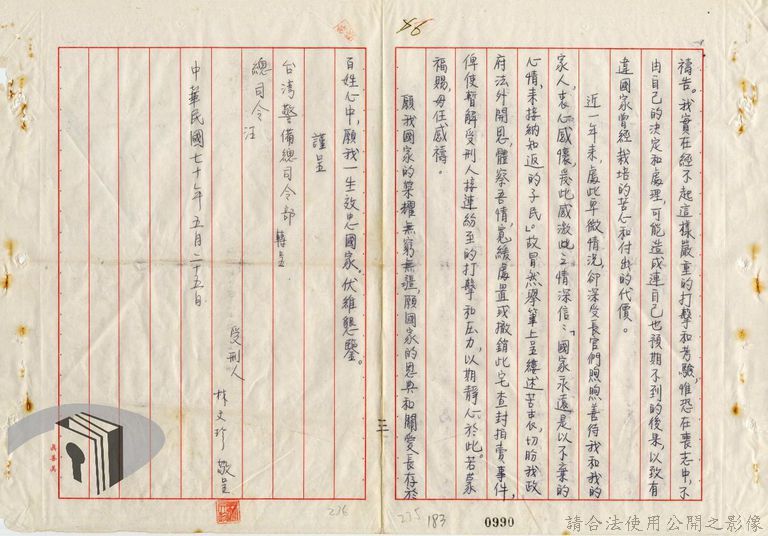 禱告。我實在經不起這樣嚴重的打擊和考驗,惟恐在喪志中,不
由自己的決定和處理,可能造成連自己也預期不到的後果,以致有
違國家曾經栽培的苦心和付出的代價。
近一年來,處此卑微情況,卻深受長官們煦煦善待我和我的
家人,衷心感懷,為此感激之情深信:「國家永遠是以不棄的
心情,來接納知返的子民」。故冒然舉筆上呈縷述苦衷,切盼我政
府法外開恩,體察吾情,寬緩處置或撤銷此宅查封拍賣事件,
俾使暫解受刑人接連紛至的打擊和壓力,以期靜心於此。若蒙
福賜,毋任感禱。
願我國家的榮耀無窮無疆,願國家的恩典和關愛長存於
百姓心中,願我一生效忠國家,伏維懇鑒。
謹呈
台灣警備總司令部 轉呈
總司令 汪
受刑人
林文珍 敬呈
中華民國七十年五月二十五日
三
86
236
235
183
0990
請合法使用公開之影像